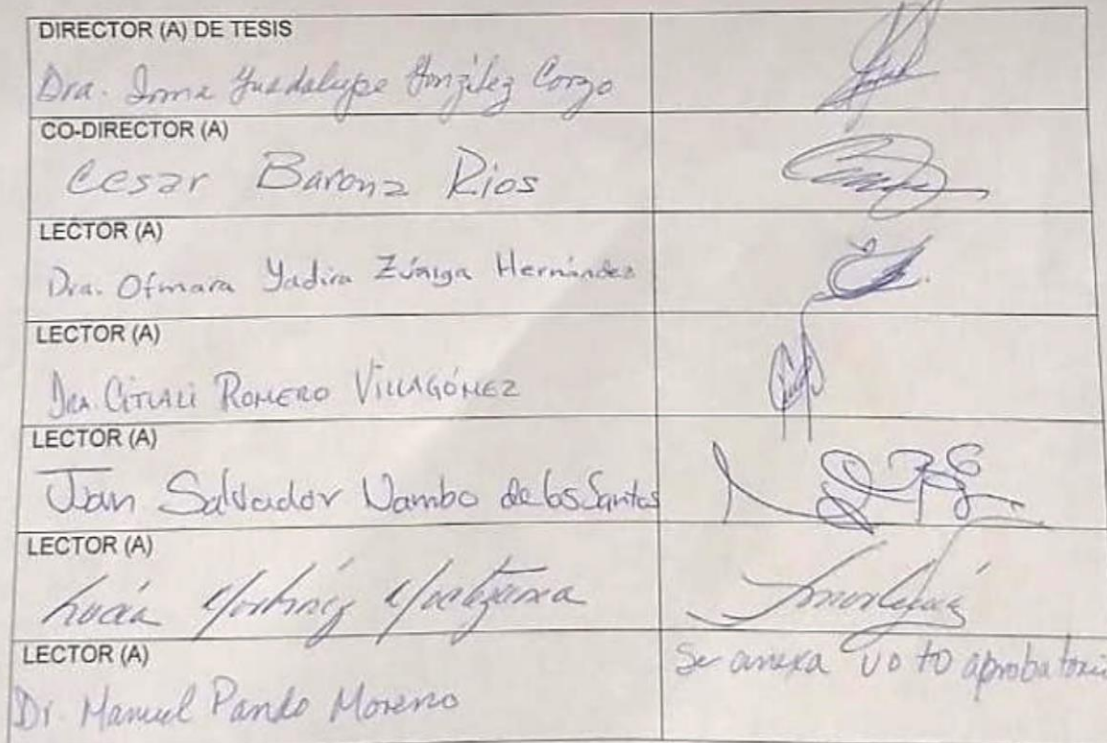 DIRECTOR (A) DE TESIS
Dra. Irma Guadalupe González Corzo
CO-DIRECTOR (A)
Cesar Barona Rios
LECTOR (A)
Dra. Ofmara Yadira Zúñiga Hernández
LECTOR (A)
Dra. Citlali Romero Villagómez
LECTOR (A)
Juan Salvador Nambo de los Santos
LECTOR (A)
Lucía Martínez
LECTOR (A)
Dr. Manuel Pando Moreno
Se anexa voto aprobatorio